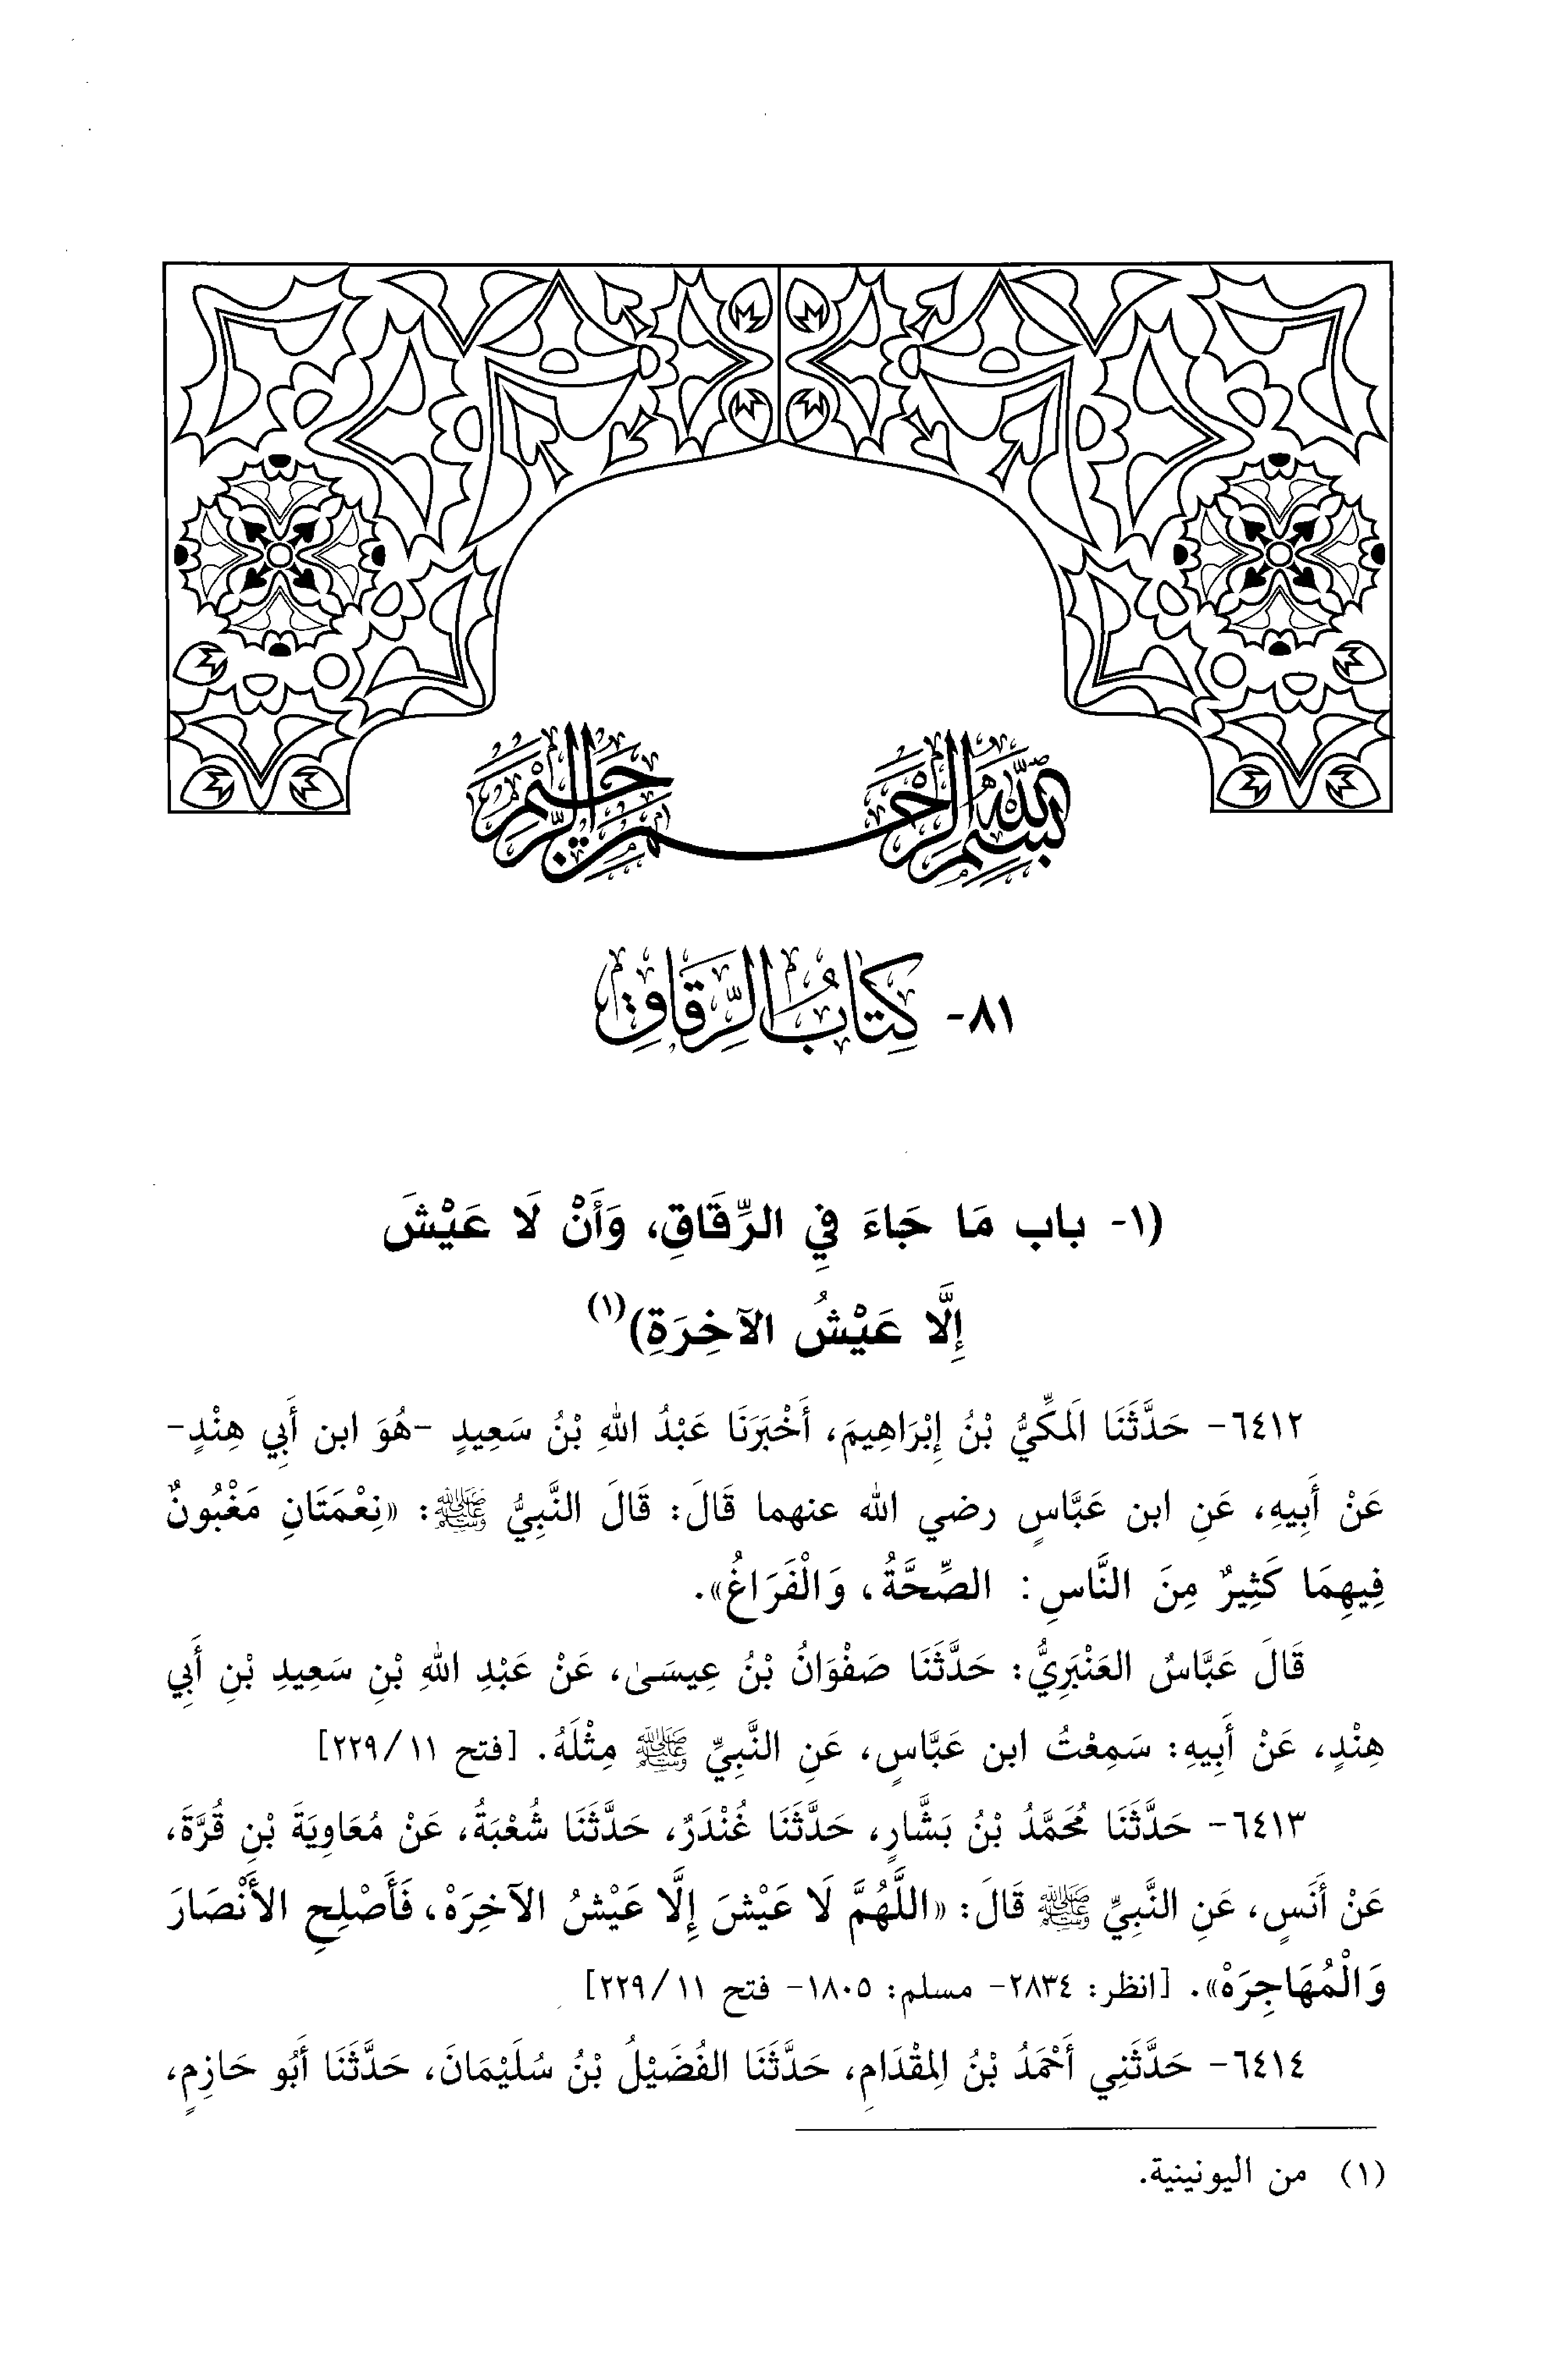 بسم الله الرحمن الرحيم
٨١- كِتَابُ الرِّقَاقِ
(١- باب مَا جَاءَ فِي الرِّقَاقِ، وَأَنْ لَا عَيْشَ
إِلَّا عَيْشُ الآخِرَةِ)(١)
٦٤١٢- حَدَّثَنَا الَمكِّيُّ بْنُ إِبْرَاهِيمَ، أَخْبَرَنَا عَبْدُ اللهِ بْنُ سَعِيدٍ -هُوَ ابن أَبِي هِنْدٍ-
عَنْ أَبِيهِ، عَنِ ابن عَبَّاسٍ رضي الله عنهما قَالَ: قَالَ النَّبِيُّ ﷺ: «نِعْمَتَانِ مَغْبُونٌ
فِيهِمَا كَثِيرٌ مِنَ النَّاسِ: الصِّحَّةُ، وَالْفَرَاغُ».
قَالَ عَبَّاسٌ العَنْبَرِيُّ: حَدَّثَنَا صَفْوَانُ بْنُ عِيسَىٰ، عَنْ عَبْدِ اللهِ بْنِ سَعِيدِ بْنِ أَبِي
هِنْدٍ، عَنْ أَبِيهِ: سَمِعْتُ ابن عَبَّاسٍ، عَنِ النَّبِيِّ ﷺ مِثْلَهُ. [فتح ١١/ ٢٢٩]
٦٤١٣- حَدَّثَنَا مُحَمَّدُ بْنُ بَشَّارٍ، حَدَّثَنَا غُنْدَرٌ، حَدَّثَنَا شُعْبَةُ، عَنْ مُعَاوِيَةَ بْنِ قُرَّةَ،
عَنْ أَنَسٍ، عَنِ النَّبِيِّ ﷺ قَالَ: «اللَّهُمَّ لَا عَيْشَ إِلَّا عَيْشُ الآخِرَهْ، فَأَصْلِحِ الأَنْصَارَ
وَالْمُهَاجِرَهْ». [انظر: ٢٨٣٤- مسلم: ١٨٠٥- فتح ١١/ ٢٢٩]
٦٤١٤- حَدَّثَنِي أَحْمَدُ بْنُ المِقْدَامِ، حَدَّثَنَا الفُضَيْلُ بْنُ سُلَيْمَانَ، حَدَّثَنَا أَبُو حَازِمٍ،
(١) من اليونينية.